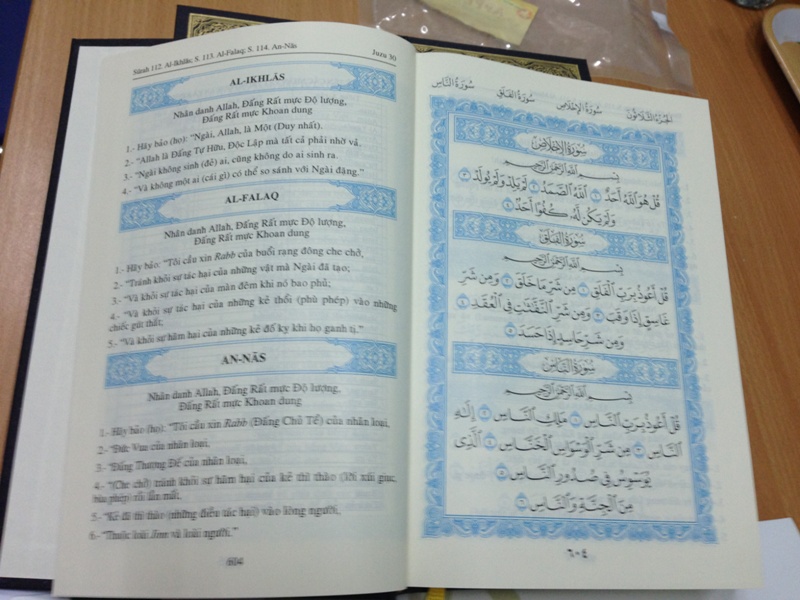 Sûrah 112. Al-Ikhlâs; S. 113. Al-Falaq; S. 114. An-Nâs Juzu 30
AL-IKHLÂS
Nhân danh Allah, Đấng Rất mực Độ lượng,
Đấng Rất mực Khoan dung
1.- Hãy bảo (họ): "Ngài, Allah, là Một (Duy nhất).
2.- "Allah là Đấng Tự Hữu, Độc Lập mà tất cả phải nhờ vả.
3.- "Ngài không sinh (đẻ) ai, cũng không do ai sinh ra.
4.- "Và không một ai (cái gì) có thể so sánh với Ngài đặng."
AL-FALAQ
Nhân danh Allah, Đấng Rất mực Độ lượng,
Đấng Rất mực Khoan dung
1.- Hãy bảo: "Tôi cầu xin Rabb của buổi rạng đông che chở,
2.- "Tránh khỏi sự tác hại của những vật mà Ngài đã tạo;
3.- "Và khỏi sự tác hại của màn đêm khi nó bao phủ;
4.- "Và khỏi sự tác hại của những kẻ thổi (phù phép) vào những
chiếc gút thắt;
5.- "Và khỏi sự hãm hại của những kẻ đố kỵ khi họ ganh tị."
AN-NÂS
Nhân danh Allah, Đấng Rất mực Độ lượng,
Đấng Rất mực Khoan dung
1.- Hãy bảo (họ): "Tôi cầu xin Rabb (Đấng Chủ Tể) của nhân loại,
2.- "Đức Vua của nhân loại,
3.- "Đấng Thượng Đế của nhân loại,
4.- "(Che chở) tránh khỏi sự hãm hại của kẻ thì thào (lời xúi giục,
bùa phép) rồi lẩn mất,
5.- "Kẻ đã thì thào (những điều tác hại) vào lòng người,
6.- "Thuộc loài Jinn và loài người."
604
الجزء الثلاثون سورة الإخلاص سورة الفلق سورة الناس
سُورَةُ الإِخْلَاصِ
بِسْمِ اللَّهِ الرَّحْمَٰنِ الرَّحِيمِ
قُلْ هُوَ اللَّهُ أَحَدٌ ١ اللَّهُ الصَّمَدُ ٢ لَمْ يَلِدْ وَلَمْ يُولَدْ ٣
وَلَمْ يَكُن لَّهُ كُفُوًا أَحَدٌ ٤
سُورَةُ الفَلَقِ
بِسْمِ اللَّهِ الرَّحْمَٰنِ الرَّحِيمِ
قُلْ أَعُوذُ بِرَبِّ الْفَلَقِ ١ مِن شَرِّ مَا خَلَقَ ٢ وَمِن شَرِّ
غَاسِقٍ إِذَا وَقَبَ ٣ وَمِن شَرِّ النَّفَّاثَاتِ فِي الْعُقَدِ ٤
وَمِن شَرِّ حَاسِدٍ إِذَا حَسَدَ ٥
سُورَةُ النَّاسِ
بِسْمِ اللَّهِ الرَّحْمَٰنِ الرَّحِيمِ
قُلْ أَعُوذُ بِرَبِّ النَّاسِ ١ مَلِكِ النَّاسِ ٢ إِلَٰهِ
النَّاسِ ٣ مِن شَرِّ الْوَسْوَاسِ الْخَنَّاسِ ٤ الَّذِي
يُوَسْوِسُ فِي صُدُورِ النَّاسِ ٥
مِنَ الْجِنَّةِ وَالنَّاسِ ٦
٦٠٤